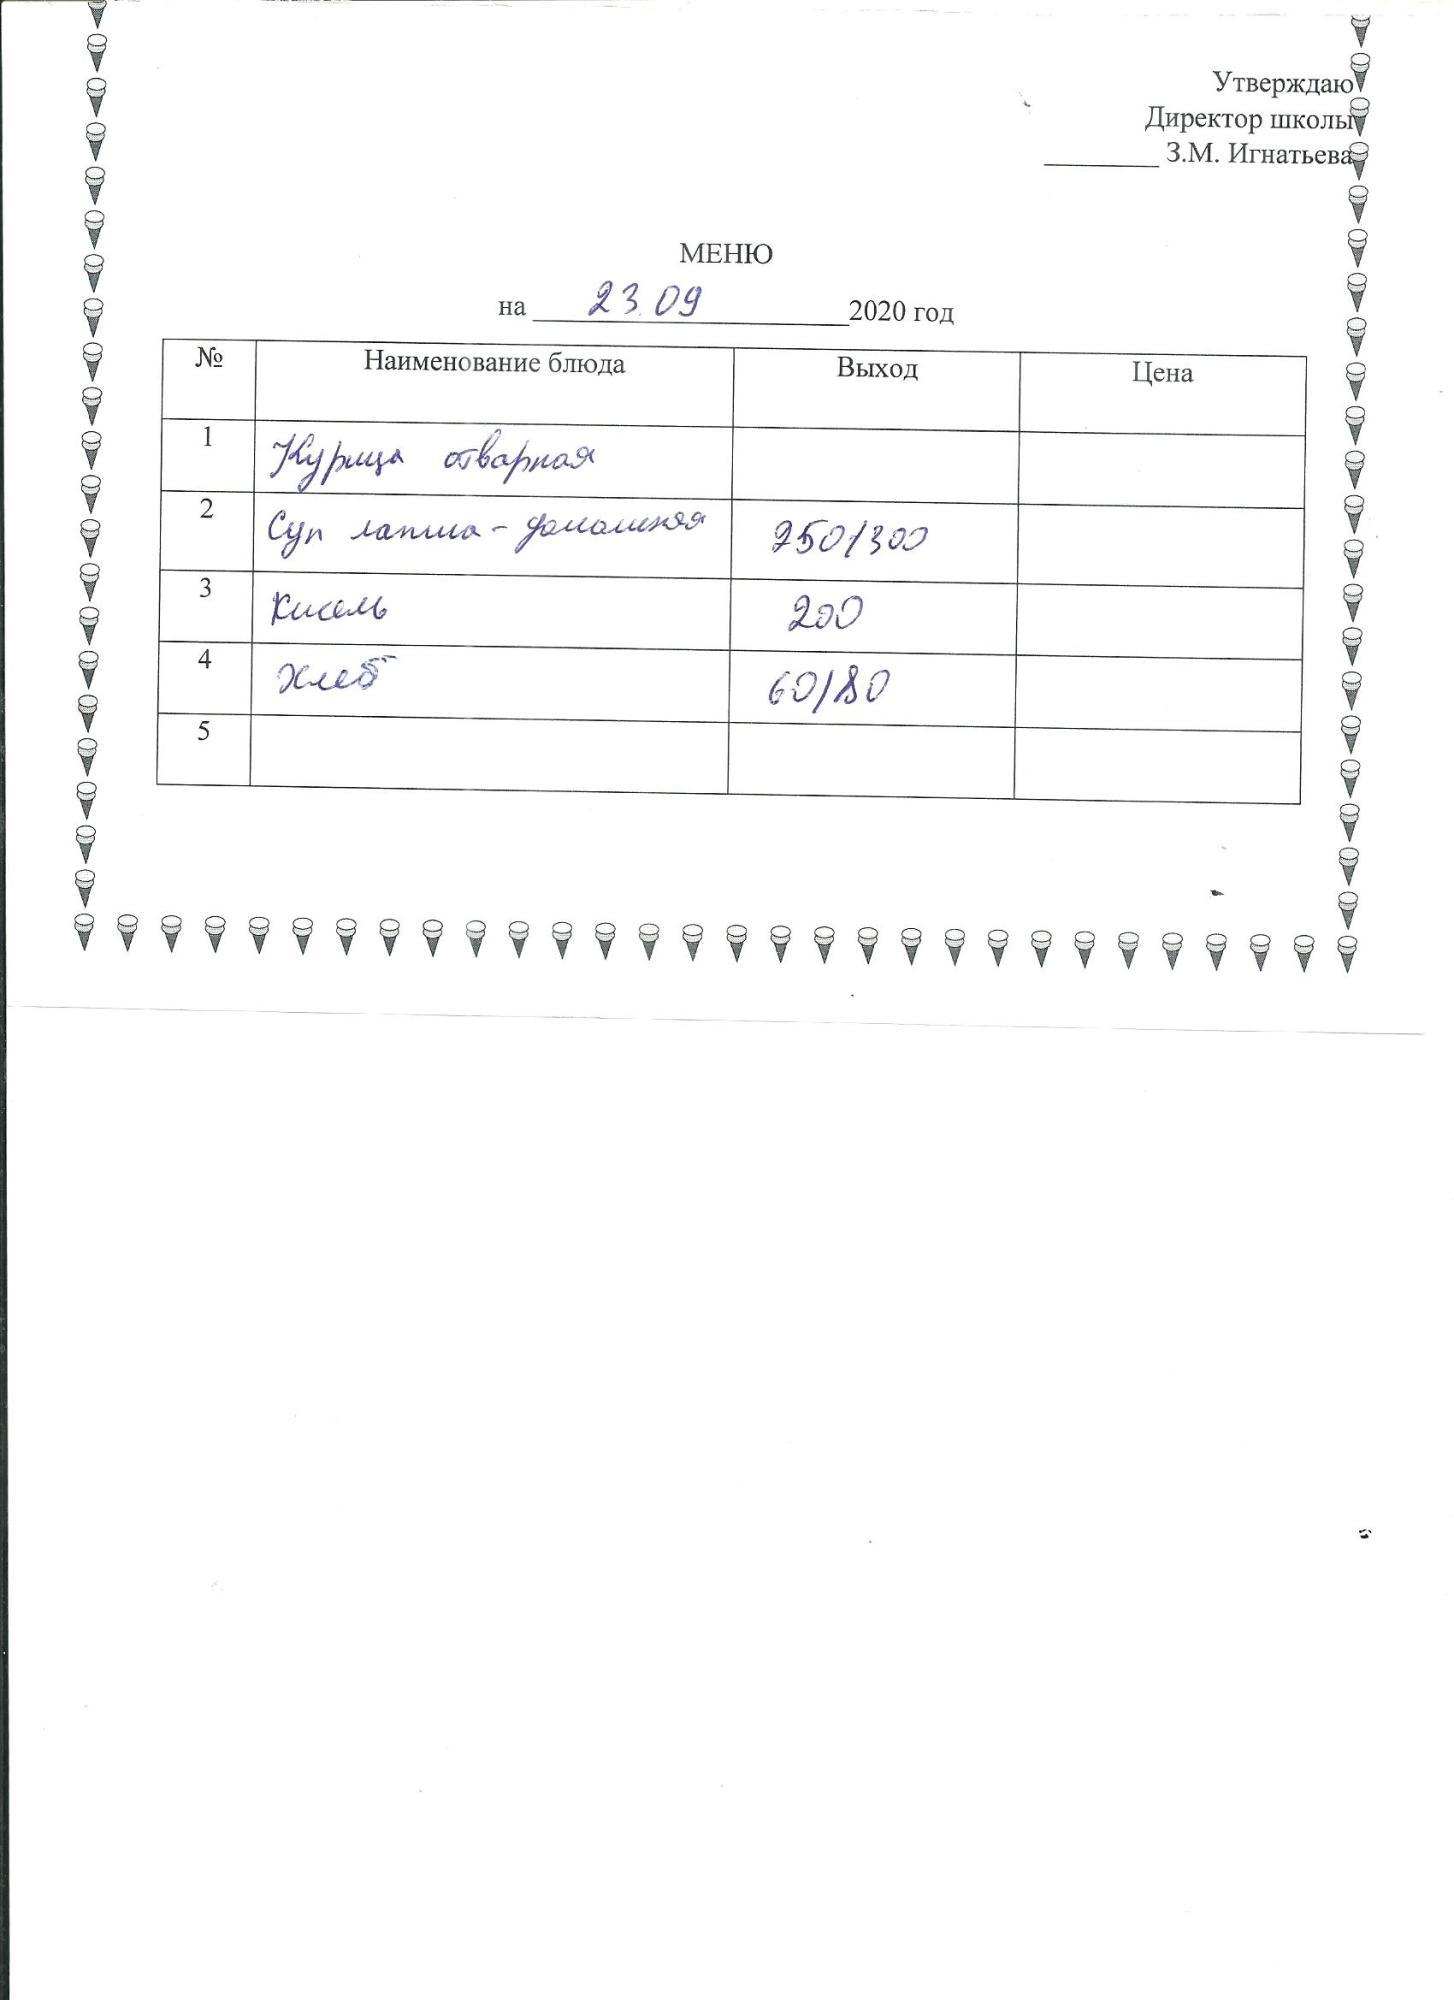 Утверждаю
Директор школы
________ З.М. Игнатьева
МЕНЮ
на 23.09 2020 год
№ Наименование блюда Выход Цена
1 Курица отварная
2 Суп лапша - домашняя 250/300
3 Кисель 200
4 Хлеб 60/80
5